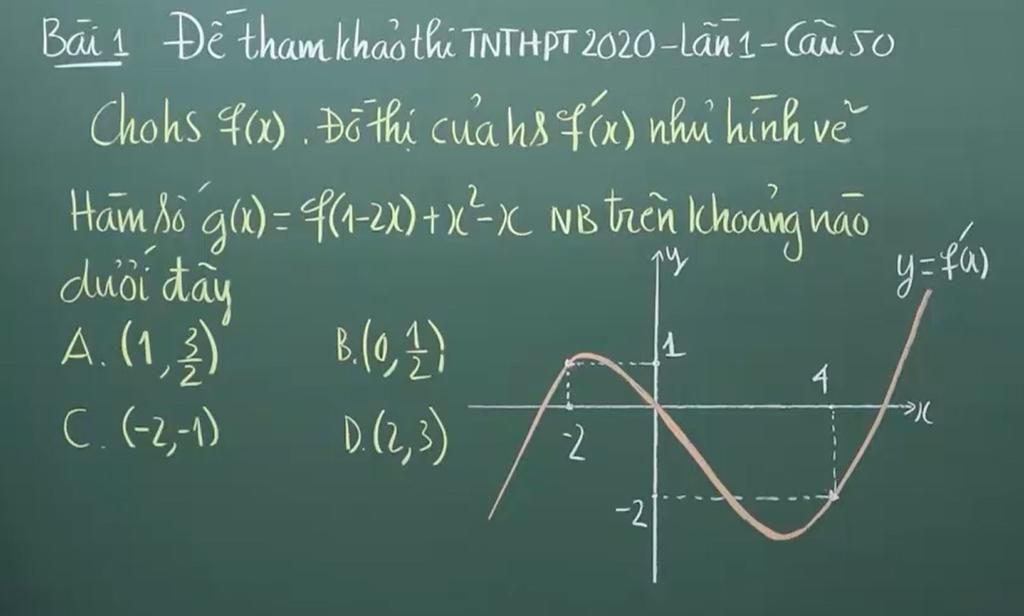 Bài 1 Đề tham khảo thi TNTHPT 2020-Lần 1-Câu 50
Cho hs f(x). Đồ thị của hs f'(x) như hình vẽ
Hàm số g(x) = f(1-2x) + x²-x NB trên khoảng nào
dưới đây
A. (1, 3/2) B. (0, 1/2)
C. (-2,-1) D. (2,3)
y
y=f'(x)
1
4
x
-2
-2